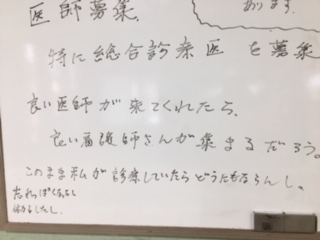 医師募集
あります
特に総合診療医を募集
良い医師が来てくれたら、
良い看護師さんが集まるだろう。
このまま私が診療していたらどうにもならんし。